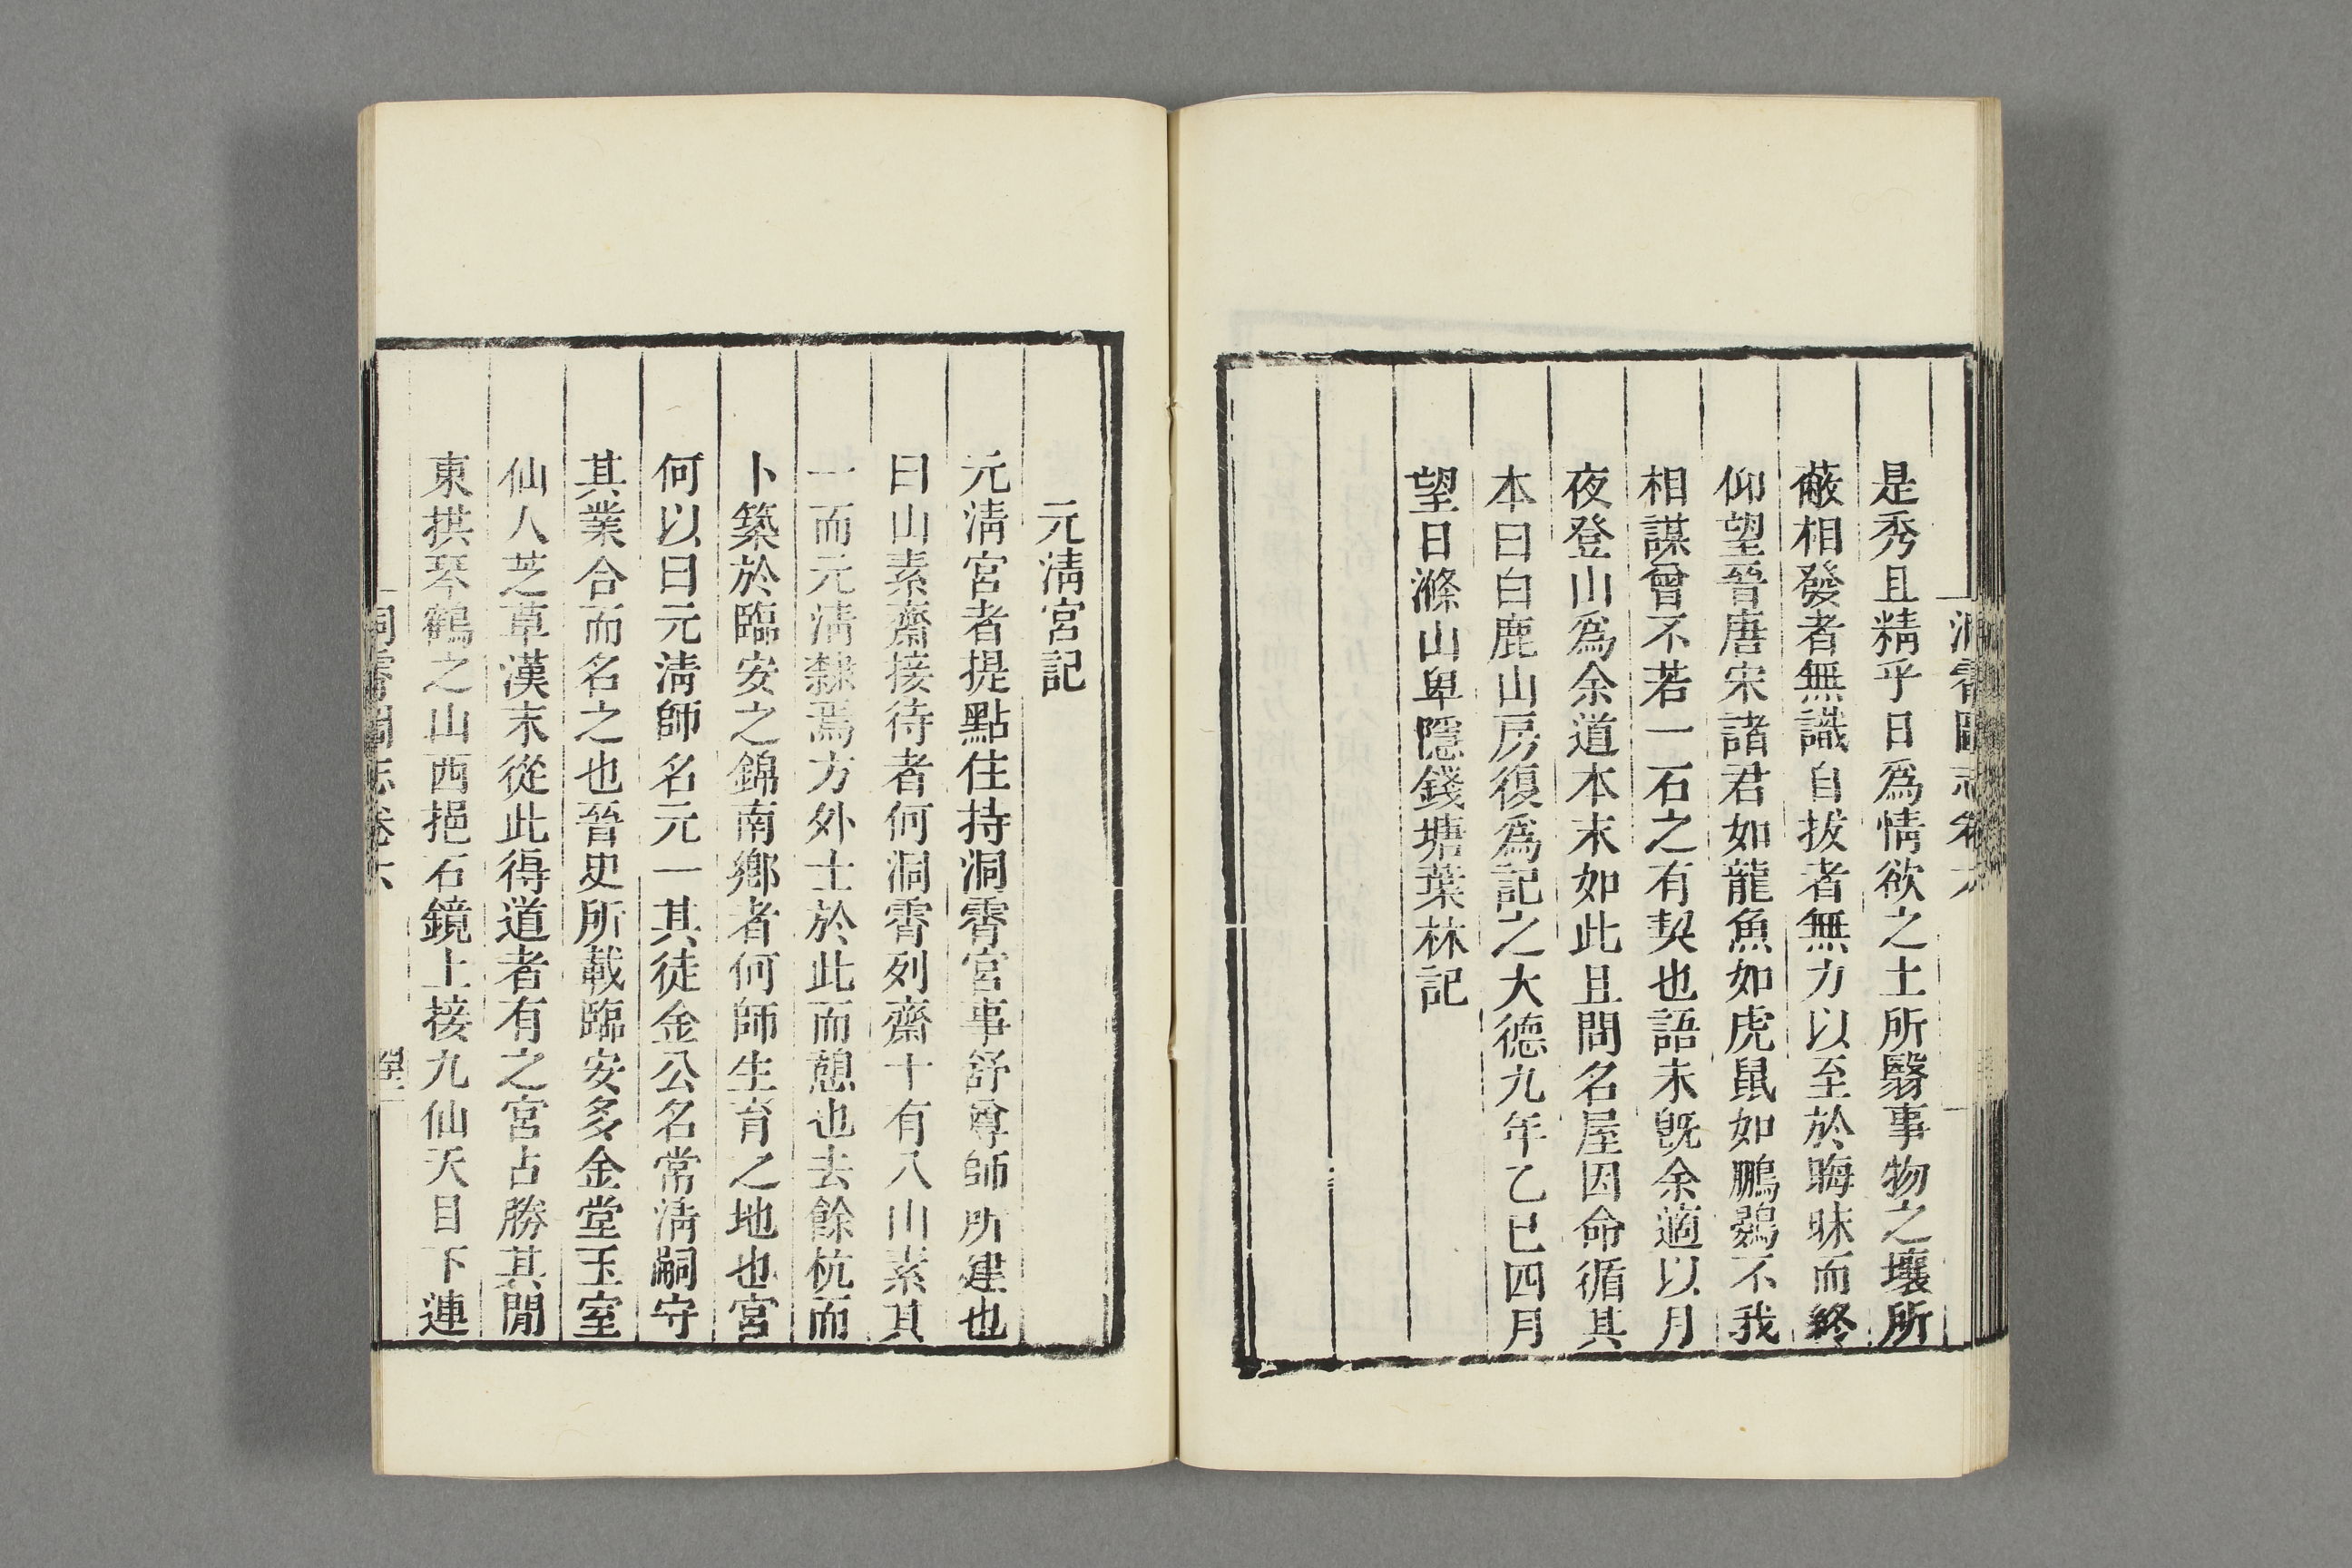 洞霄圖志卷六
是秀且精乎日爲情欲之土所翳事物之壤所
蔽相發者無識自拔者無力以至於晦昧而終
仰望晉唐宋諸君如龍魚如虎鼠如鵬鷃不我
相謀曾不若一石之有契也語未旣余適以月
夜登山爲余道本末如此且問名屋因命循其
本曰白鹿山房復爲記之大德九年乙巳四月
望日滌山卑隱錢塘葉林記
元淸宮記
元淸宮者提點住持洞霄宮事舒尊師所建也
曰山素齋接待者何洞霄列齋十有八山素其
一而元淸隸焉方外士於此而憩也去餘杭而
卜築於臨安之錦南鄕者何師生育之地也宮
何以曰元淸師名元一其徒金公名常淸嗣守
其業合而名之也晉史所載臨安多金堂玉室
仙人芝草漢末從此得道者有之宮占勝其閒
東拱琴鶴之山西挹石鏡上接九仙天目下連
洞霄圖志卷六